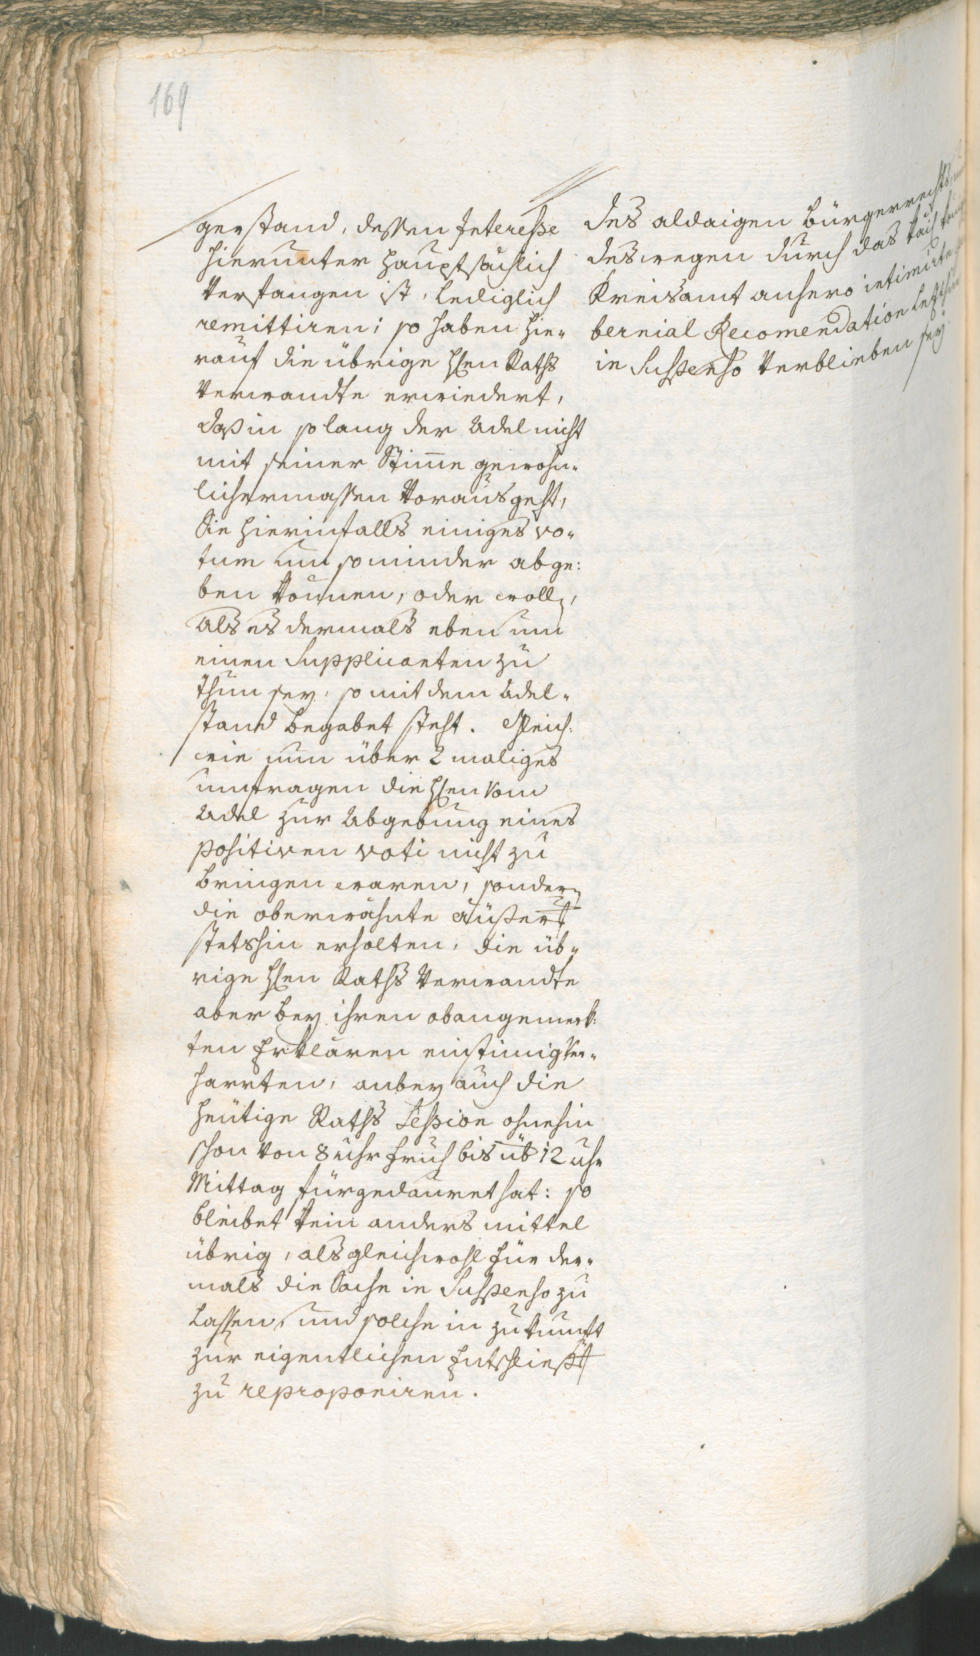 169
gerstand, dessen Interesse
hierunter hauptsächlich
verfangen ist, lediglich
remittiren; so haben hie-
rauf die übrige Hℓen Raths
Verwandte erwiedert,
daß in so lang der Adel nicht
mit seiner Stimme gewohn-
lichermassen vorausgeht,
Sie hierinfalls einiges vo-
tum um so minder abge-
ben können, oder wolln,
als es dermals eben um
einen Supplicanten zu
thun sey, so mit dem Adel-
stand begabet steht. Gleich-
wie nun über 2 maliges
umfragen die Hℓen vom
Adel zur Abgebung eines
positiven voti nicht zu
bringen waren, sondern
die oberwähnte äüßert
stetshin erholten, die üb-
rige Hℓen Raths Verwandte
aber bey ihren obangemerk-
ten Erklären einstimig ver-
harrten, anbey auch die
heütige Raths Session ohnehin
schon von 8 uhr fruh bis üb 12 uhr
Mittag fürgedauret hat: so
bleibet kein anders mittel
übrig, als gleichwohl für der-
mals die Sache in Suspenso zu
lassen, und solche in zukunft
zur eigentlichen Entschließt
zu reproponiren.
des aldaigen Bürgerrechts
deswegen durch das kais
Kreisamt anhero intimirte
bernial Recomendation
in Suspenso verblieben sey